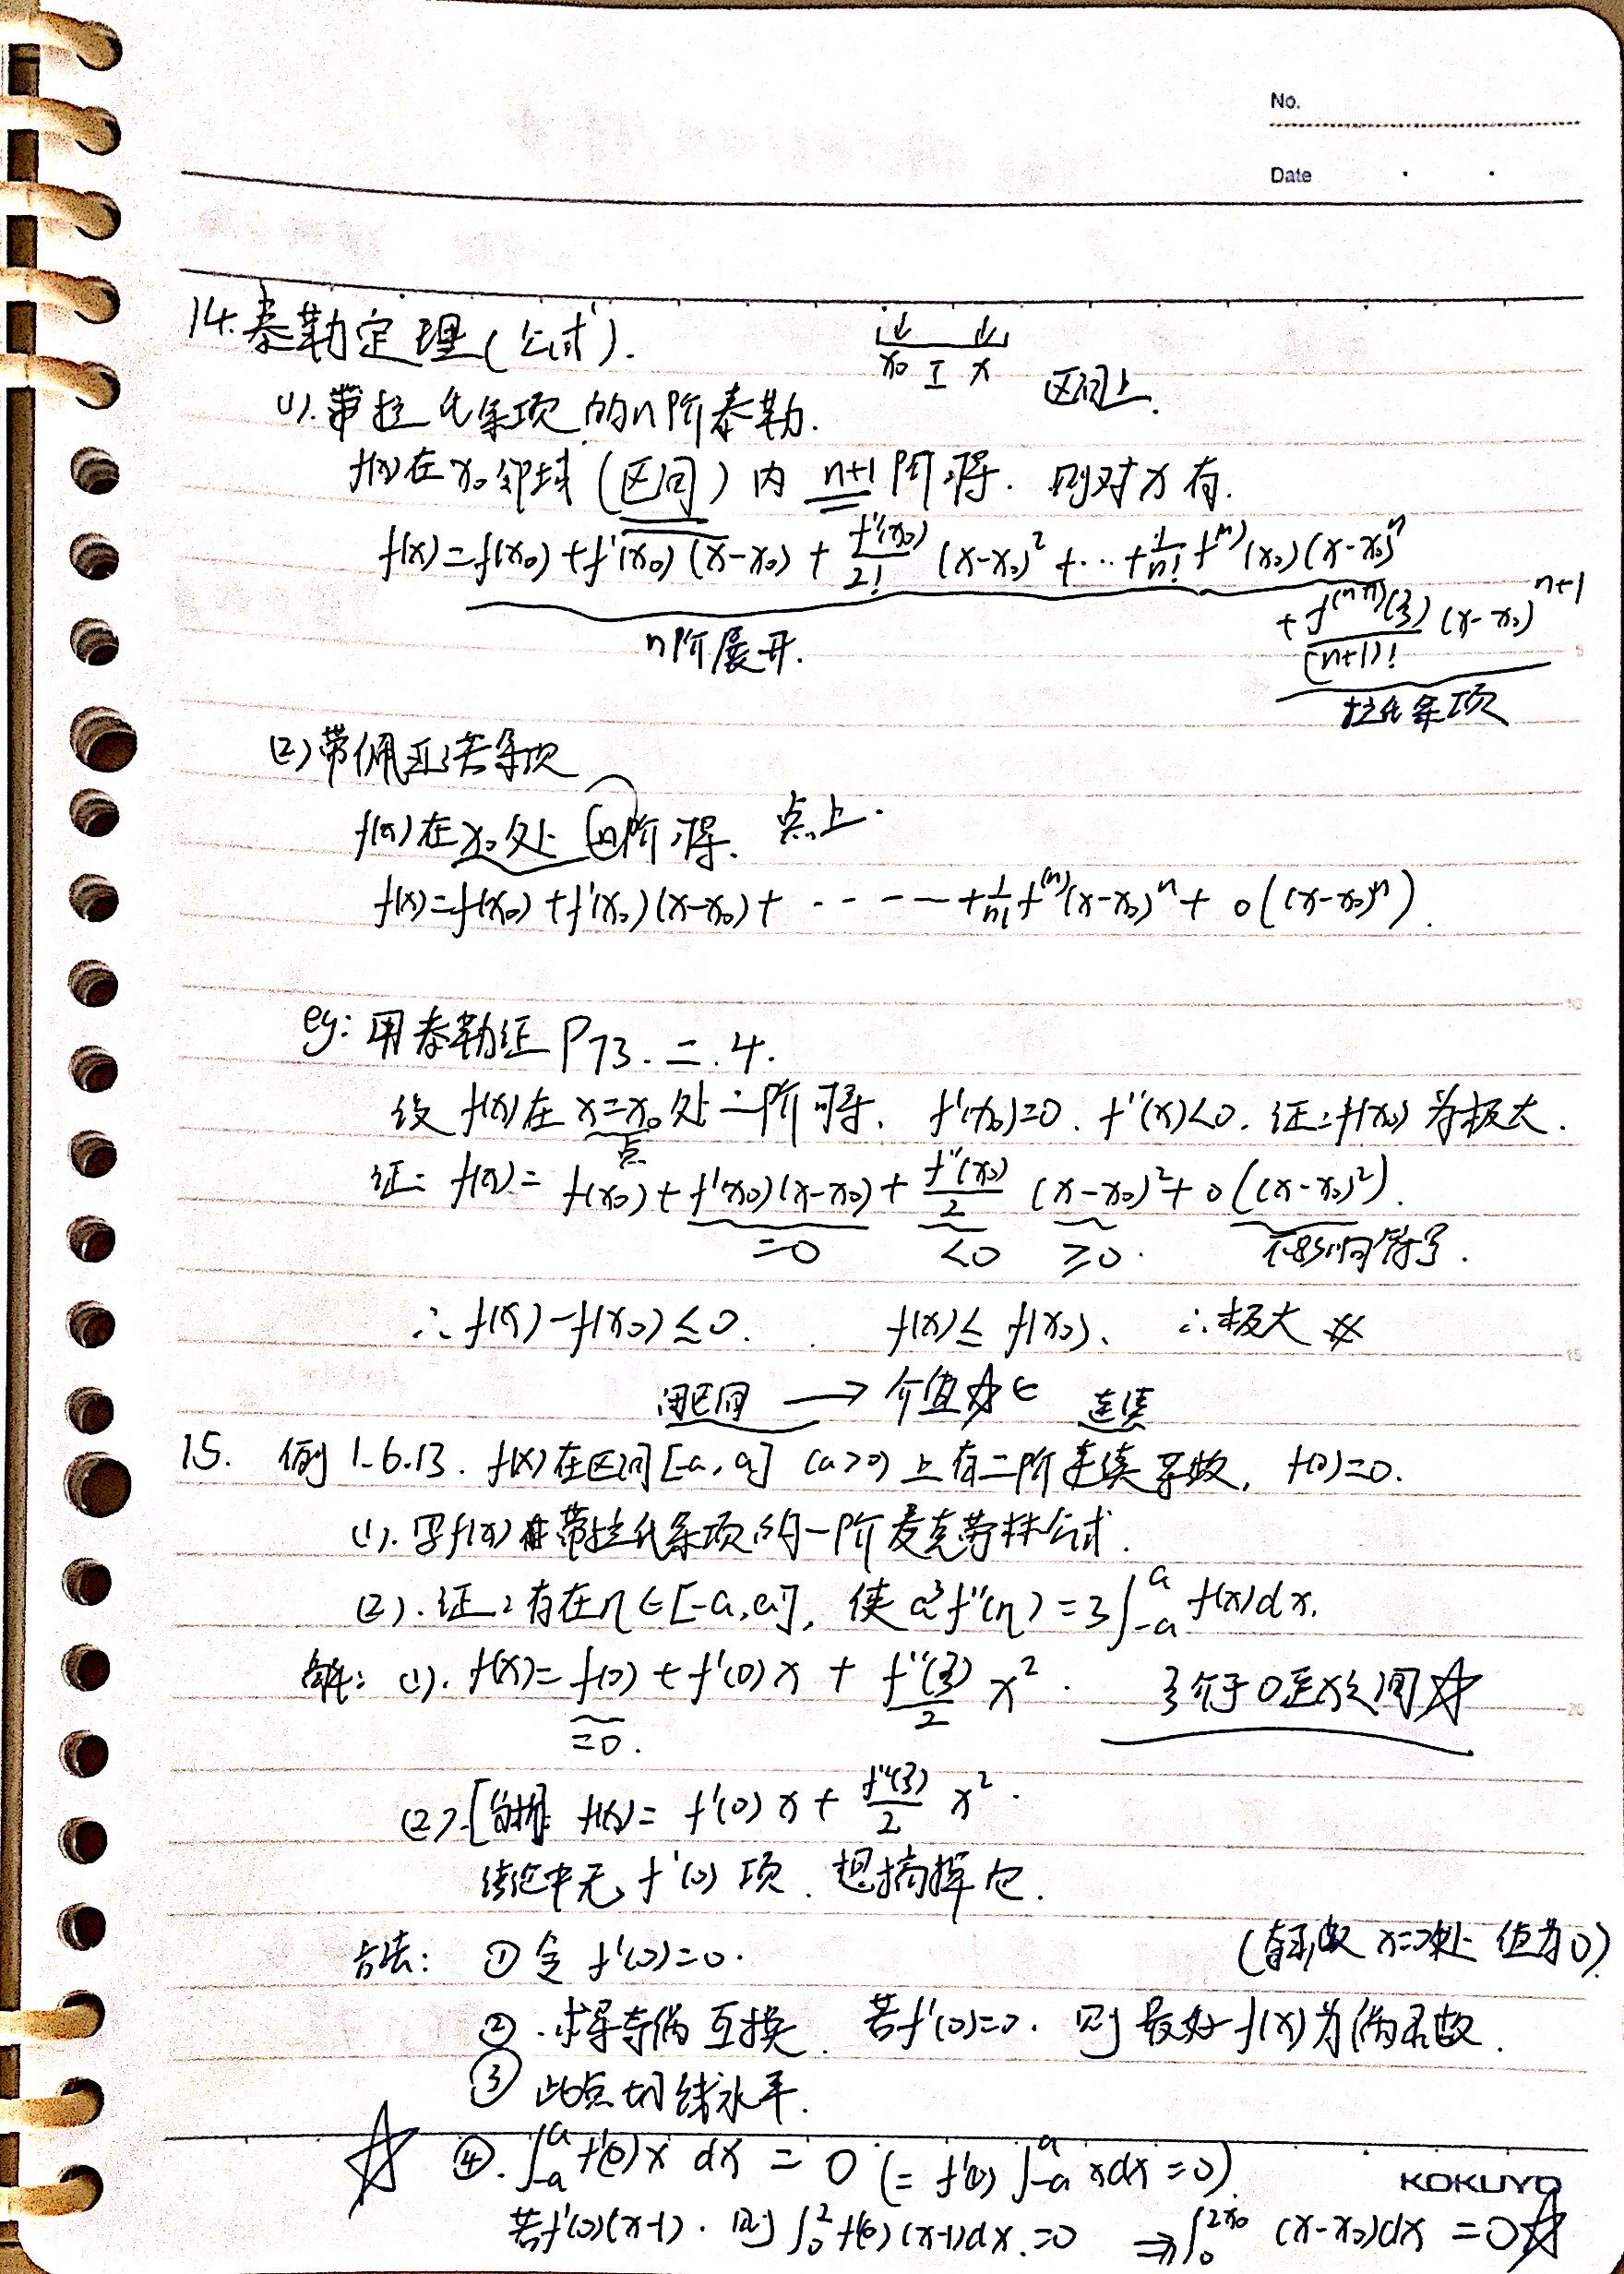 No.
Date
14.泰勒定理(公式).
x₀ I x 区间上.
(1).带拉氏余项的n阶泰勒.
f(x)在x₀邻域(区间)内 n+1阶可导. 则对x有.
f(x)=f(x₀)+f'(x₀)(x-x₀)+f''(x₀)/2!(x-x₀)²+…+1/n! f⁽ⁿ⁾(x₀)(x-x₀)ⁿ
+f⁽ⁿ⁺¹⁾(ξ)/(n+1)! (x-x₀)ⁿ⁺¹
n阶展开.
拉氏余项
(2)带佩亚诺余项
f(x)在x₀处n阶可导. 点上.
f(x)=f(x₀)+f'(x₀)(x-x₀)+······+1/n! f⁽ⁿ⁾(x-x₀)ⁿ+o((x-x₀)ⁿ).
eg:用泰勒证P73.二.4.
设f(x)在x=x₀处二阶可导. f'(x₀)=0. f''(x)<0. 证:f(x₀)为极大.
点
证: f(x)=f(x₀)+f'(x₀)(x-x₀)+f''(x₀)/2 (x-x₀)²+o((x-x₀)²).
=0 <0 ≥0. 不影响符号.
∴f(x)-f(x₀)≤0. f(x)≤f(x₀). ∴极大
闭区间 → 介值☆ ← 连续
15. 例1.6.13. f(x)在区间[-a,a] (a>0)上有二阶连续导数, f(0)=0.
(1).写f(x)带拉氏余项的一阶麦克劳林公式.
(2).证:存在η∈[-a,a], 使a³f''(η)=3∫₋ₐᵃ f(x)dx.
解: (1). f(x)=f(0)+f'(0)x+f''(ξ)/2 x². ξ介于0至x之间☆
=0.
(2).[分析: f(x)=f'(0)x+f''(ξ)/2 x².
结论中无f'(0)项. 想搞掉它.
方法: ①令f'(0)=0.
(奇函数x=0处值为0)
②.求导奇偶互换. 若f'(0)=0. 则最好f(x)为偶函数.
③此点切线水平.
☆ ④.∫₋ₐᵃ f'(0)x dx=0 (=f'(0)∫₋ₐᵃ xdx=0).
KOKUYO
若f'(0)(x-1). 则∫₀² f'(0)(x-1)dx.=0 ⇒∫₀^2x₀ (x-x₀)dx=0☆